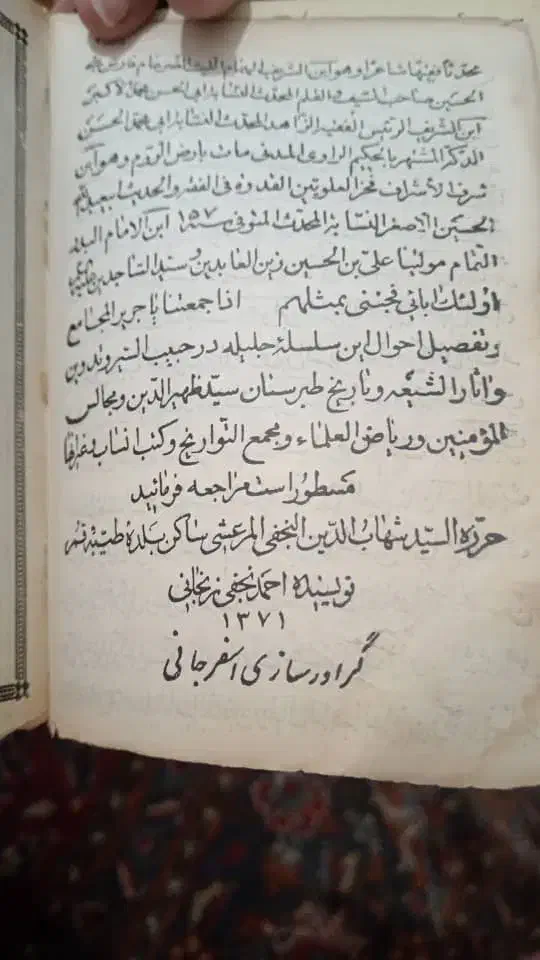 محمد نافیها شاعرا وهو ابن الشریف الهمام
الحسین صاحب السیف و القلم المحدث النسابة ابی الحسن محمد الاکبر
ابن الشریف الرئیس الفقیه الزاهد المحدث النسابة ابی محمد الحسن
الدکة المشتهر بالحکیم الراوی المدنی مات بارض الروم وهو ابن
شرف الاشراف فخر العلویین القدوة فی الفقه والحدیث ابیعبدالله
الحسین الاصغر النسابة المحدث المتوفی سنة ۱۵۷ ابن الامام البدر
التمام مولینا علی بن الحسین زین العابدین و سید الساجدین علیه
اولئک ابائی فجئنی بمثلهم اذا جمعتنا یا جریر المجامع
و تفصیل احوال این سلسله جلیله در حبیب السیر و تدوین
و اثار الشیعه و تاریخ طبرستان سید ظهیر الدین و مجالس
المؤمنین و ریاض العلماء و مجمع التواریخ و کتب انساب و غیرها
مسطور است مراجعه فرمائید
حرره السید شهاب الدین النجفی المرعشی ساکن بلده طیبه قم
نویسنده احمد نجفی زنجانی
۱۳۷۱
گراورسازی اسفرجانی